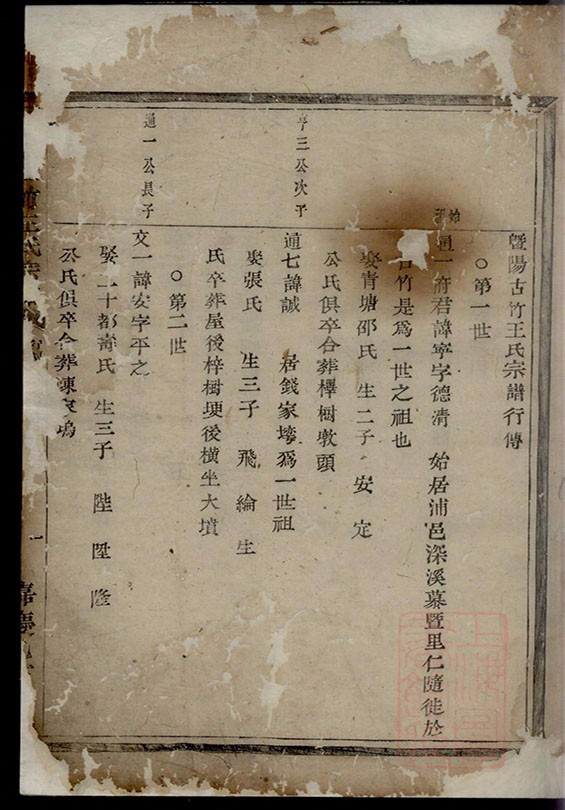 暨陽古竹王氏宗譜行傳
○第一世
始
通一府君諱寧字德清 始居浦邑深溪慕暨里仁隨徙於
古竹是爲一世之祖也
娶靑塘邵氏 生二子 安 定
公氏俱卒合葬櫸樹墩頭
亨三公次子
通七諱誠 居錢家塢爲一世祖
娶張氏 生三子 飛 綸 生
氏卒葬屋後梓樹埂後橫坐大墳
○第二世
通一公長子
文一諱安字平之
娶二十都壽氏 生三子 陞 陞 隆
公氏俱卒合葬
一